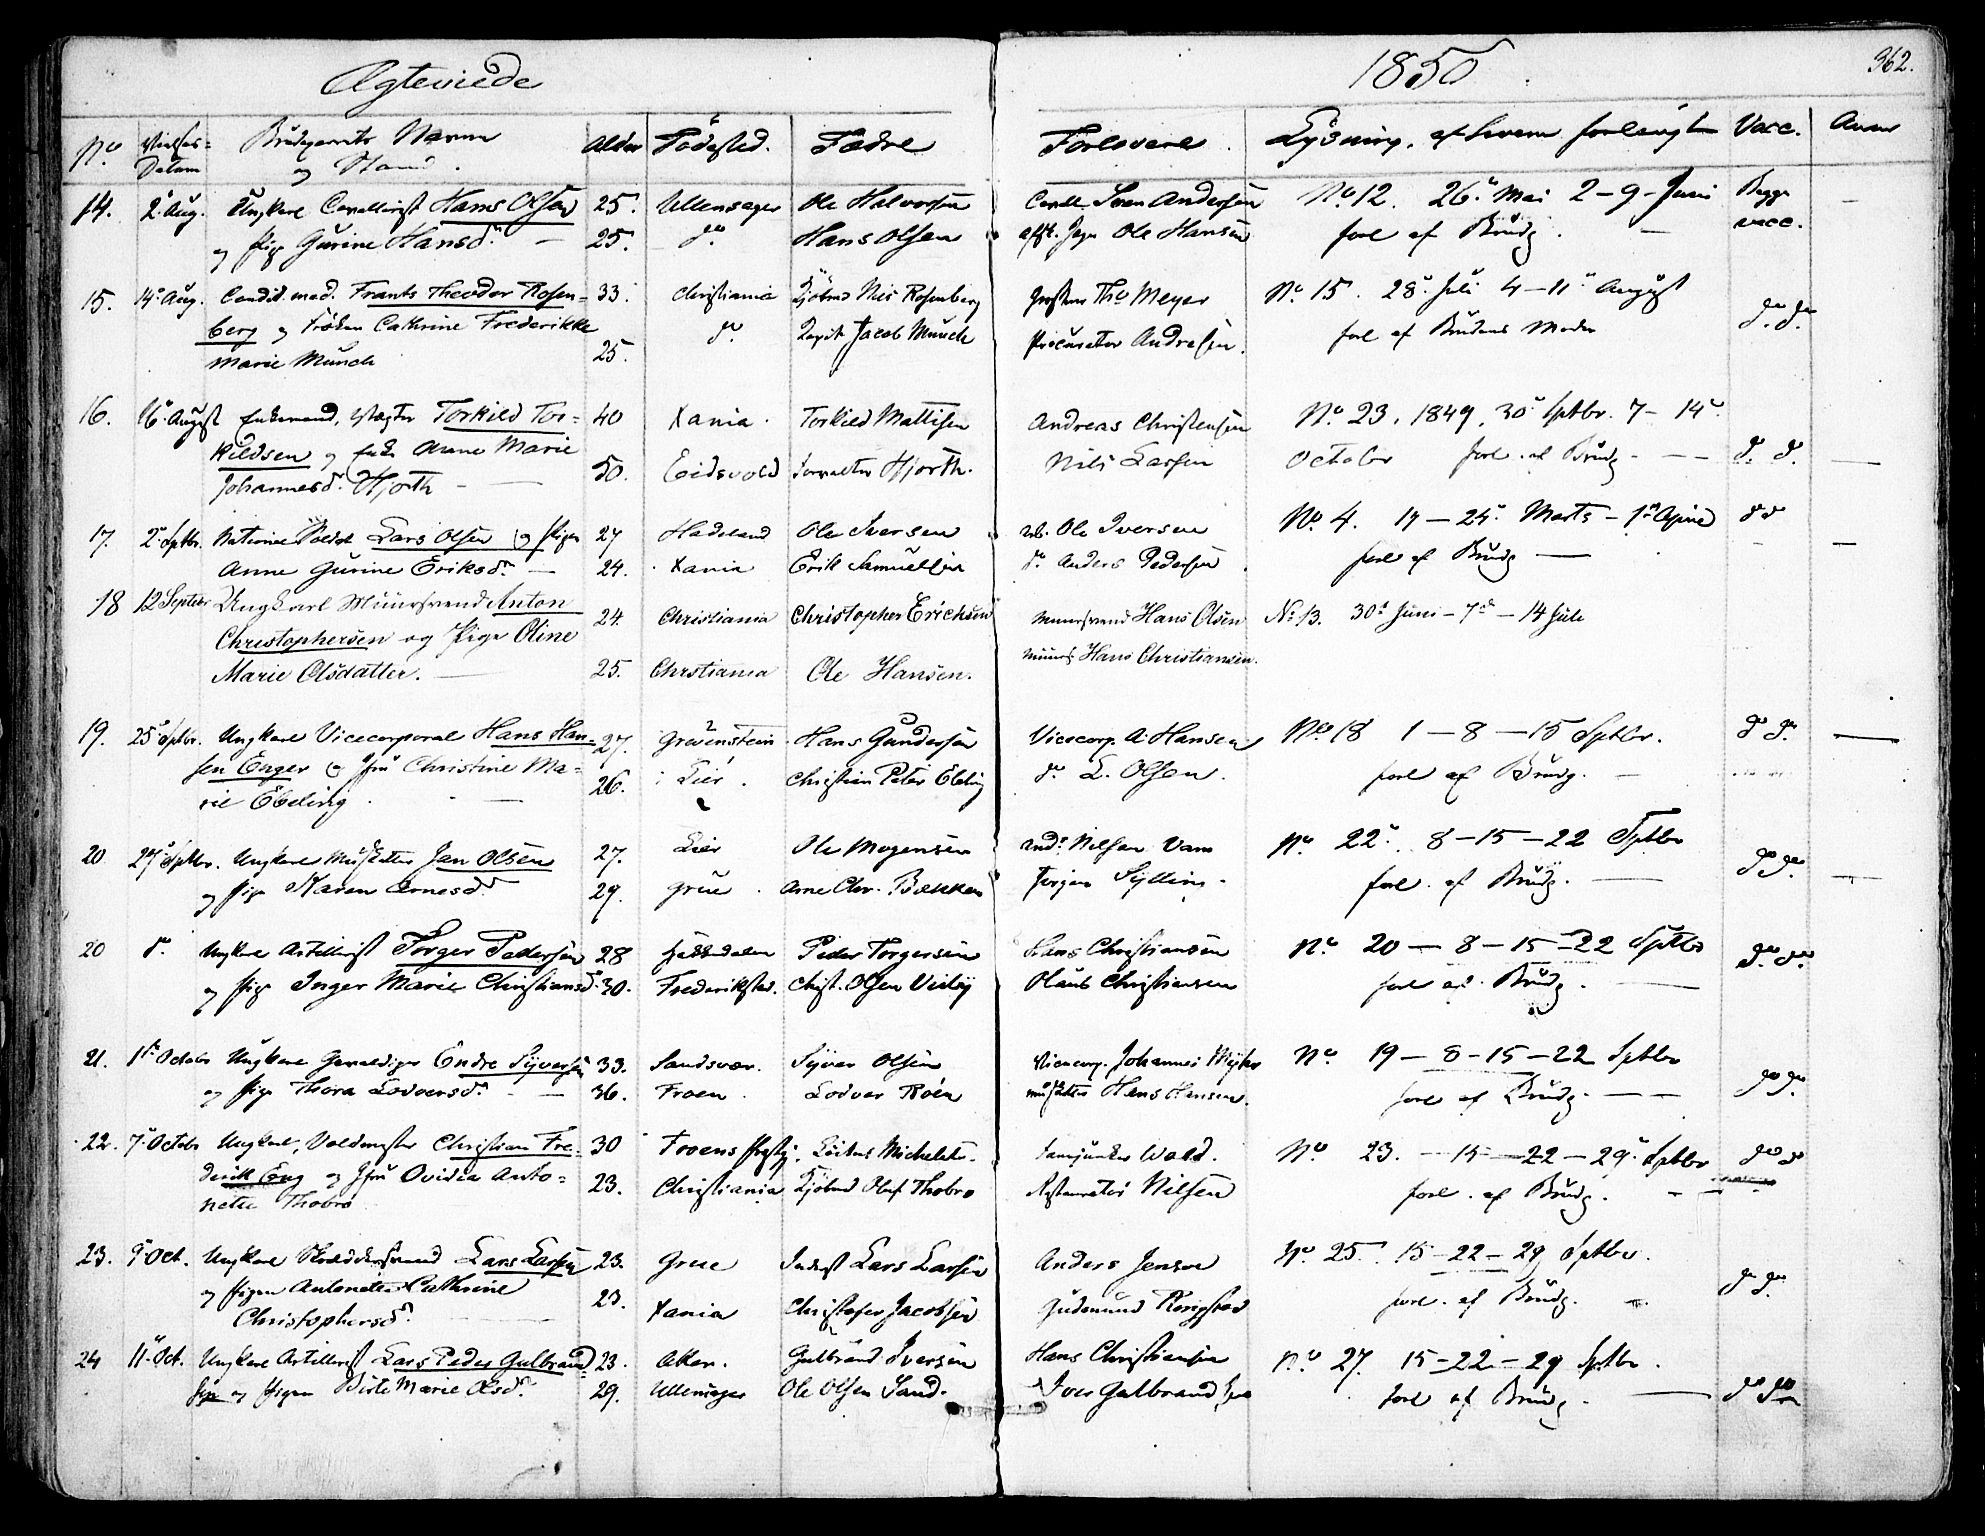 Ægteviede 1850 362.
No Vielses- Brudgoms Navn Alder Födested. Fædre Forlovere Lysning, af hvem forlangt Vacc. Anm
Datum og Stand.
14. 2. Aug. Ungkarl Cavallerist Hans Olsen 25. Ullensager Ole Halvorsen Cavall. Sven Andersen No 12. 26. Mai 2-9-Juni Begge
og Pige Gurine Hansd. — 25. do. Hans Olsen Ole Hansen forl af Brudg. — vacc.
15. 14. Aug. Candid. med. Frants Theodor Rosen- 33. Christiania Kjöbmd Nis Rosenberg Tho Meyer No 15. 28. Juli 4-11. August
berg og Fröken Cathrine Frederikke do. Capit Jacob Munch Procurator Andresen. forl af Brudens Moder do. do.
Marie Munch 25.
16. 16. August Enkemand, Torkild Tor- 40 Xania. Torkild Mattisen Andreas Christensen No. 23, 1849, 30. Sptbr. 7-14.
kildsen og Enke Anne Marie 50. Eidsvold Hjorth. Nils Larsen October forl. af Brudg. — do. do. —
Johannesd. Hjorth —
17. 2. Sptbr. National Soldat Lars Olsen og Pigen 27 Hadeland Ole Iversen Ole Iversen No. 4. 17-24. Marts - 1. April do do
Anne Gurine Eriksd. — 24. Xania Erik Samuelsen do. Anders Pedersen forl af Brudg — —
18 12 Septbr Ungkarl Muursvend Anton 24. Christiania Christopher Erichsen Muursvend Hans Olsen No. 13. 30. Juni - 7de - 14 Juli
Christophersen og Pige Oline
Marie Olsdatter. — 25. Chrstiania Ole Hansen. Muurs. Hans Christiansen.
19. 25. Sptbr. Ungkarl Vicecorporal Hans Han- 27. Hans Gundersen Vicecorp. A. Hansen No 18 1-8-15 Sptbr. do do. —
sen Enger og Jfru Christine Ma- 26. Lier. Christian Peter Ebeling do L. Olsen. forl af Brudg. —
rie Ebeling. —
20 27. Sptbr. Ungkarl Musketer Jan Olsen 27. Lier Ole Mogensen Nilsen No. 22. 8-15-22 Sptbr
og Pige Karen Arnesd. 29. Grue. Arne Chr. Bækken Jörgen Sylling. forl. af Brudg. — do do. —
20 do. Ungkarl Artillerist Torger Pedersen 28 Peder Torgersen Hans Christiansen No 20-8-15-22 Sptbr
og Pige Inger Marie Christiansd. 30. Frederikstad. Christ. Olsen Olaus Christiansen forl af Brudg. — do. do.
21. 1. Octobr Ungkarl Gevaldiger Endre Syversen 33. Sandsvær. Syver Olsen Vicecorp. Johannes No 19-8-15-22 Sptbr
og Pige Thora Lodversd. — 36. Froen. Lodver Röen Musketer Hans Hansen. forl af Brudg. — do do.
22. 7. Octobr Ungkarl, Christian Fre- 30 Froens No 23. -15-22-29. Sptbr do do
derik Eng og Jfru Ovidia Anto- 23. Christiania Kjöbmd Oluf Thobro Restauratör Nilsen forl. af Brudg. —
nette Thobro
23. 9. Oct. Ungkarl Skræddersvend Lars Larsen 23. Grue Inderst Lars Larsen Anders Jensen No 25. 15-22-29 Sptbr.
og Pigen Antonette Cathrine 23. Xania Christofer Jacobsen Gudmund forl. af Brudg. — do do.
Christophersd.
24 11. Oct. Ungkarl Artillerist Lars Peder Gulbrand- 23. Aker. Gulbrand Iversen Hans Christiansen No. 27. 15-22-29 Sptbr.
sen og Pigen Birte Marie Olsd. 29. Ullensager Ole Olsen Sand. Iver Gulbrandsen forl af Brudg. — do do